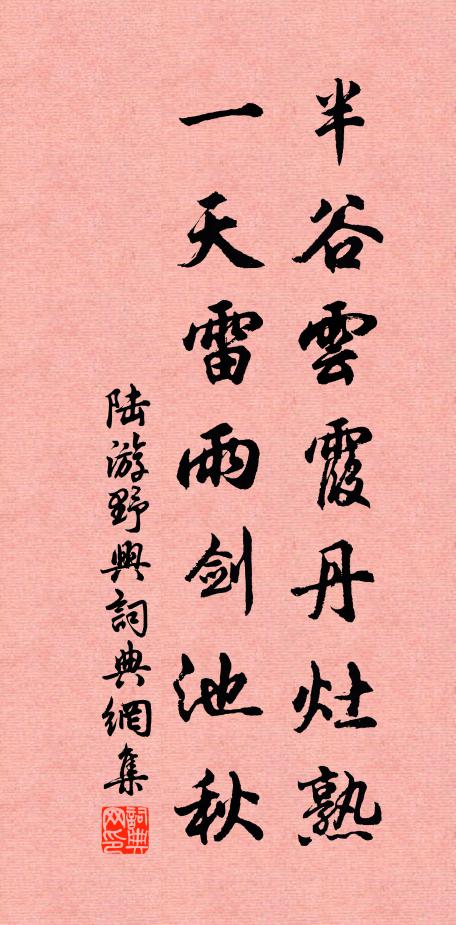 半谷雲霞丹灶熟
一天雷雨剑池秋
陆游野興詞典網集
詞典网印